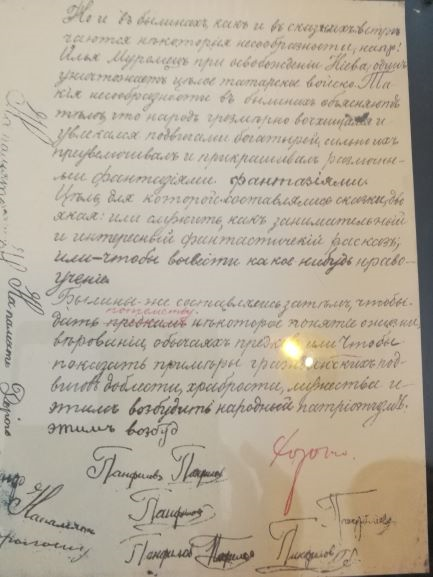 Но и въ былинахъ, какъ и въ сказкахъ встрѣ-
чаются нѣкоторыя несообразности, напр:
Илья Муромецъ при освобожденіи Кіева, одинъ
уничтожаетъ цѣлое татарское войско. Та-
кія несообразности въ былинахъ объясняются
тѣмъ, что народъ чрезмѣрно восхищался и
увлекался подвигами богатырей, сильно ихъ
преувеличивалъ и прикрашивалъ
фантазіями. фантазіями.
Цѣль, для которой составлялись сказки, дво-
якая: или служить, какъ занимательный
и интересный фантастическій разсказъ,
или чтобы вывести какое нибудь нраво-
ученіе.
Былины же составлялись затѣмъ, чтобы
потомству
дать предкамъ нѣкоторое понятіе о жизни,
вѣрованіи, обычаяхъ предковъ или чтобы
показать примѣры гражданскихъ под-
виговъ доблести, храбрости, мужества и
этимъ возбудить народный патріотизмъ.
этимъ возбуд
Хорошо.
Панфиловъ
Панфиловъ
На память
На память